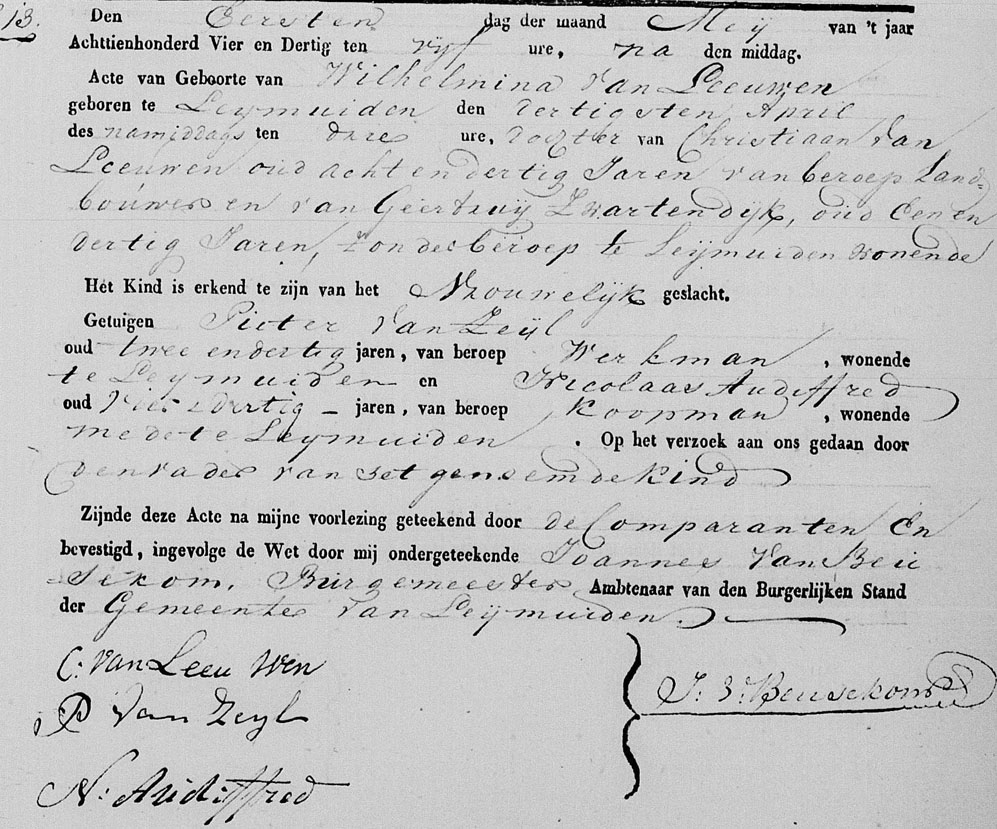 13.
Den Eersten dag der maand Meij van 't jaar
Achttienhonderd Vier en Dertig ten vijf ure, na den middag.
Acte van Geboorte van Wilhelmina van Leeuwen
geboren te Leijmuiden den dertigsten April
des namiddags ten drie ure, dogter van Christiaan van
Leeuwen oud acht en dertig Jaren van beroep Land=
bouwer en van Geertruij Zwartendijk, oud Een en
dertig Jaren, zonder beroep te Leijmuiden wonende
Het Kind is erkend te zijn van het Vrouwelijk geslacht.
Getuigen Pieter van Zeijl
oud twee en dertig jaren, van beroep Werkman, wonende
te Leijmuiden en Nicolaas Audiffred
oud vier & dertig – jaren, van beroep Koopman, wonende
mede te Leijmuiden. Op het verzoek aan ons gedaan door
den vader van het genoemde kind
Zijnde deze Acte na mijne voorlezing geteekend door de Comparanten En
bevestigd, ingevolge de Wet door mij ondergeteekende Joannes van Beu
sekom, Burgemeester Ambtenaar van den Burgerlijken Stand
der Gemeente van Leijmuiden.
C: van Leeuwen
P van Zeyl
J: v: Beusekom
N: Audiffred